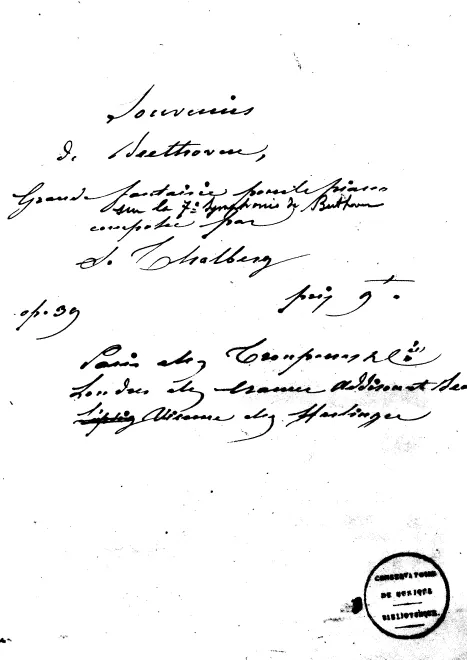 Souvenirs
de Beethoven,
Grande fantaisie pour le piano
sur la 7e Symphonie de Beethoven
composée par
S. Thalberg
op. 39
prix 9f.
Paris chez Troupenas & Cie
Londres chez Cramer Addison et Bea
Leipzig Vienne chez Haslinger
CONSERVATOIRE
DE MUSIQUE
BIBLIOTHÈQUE